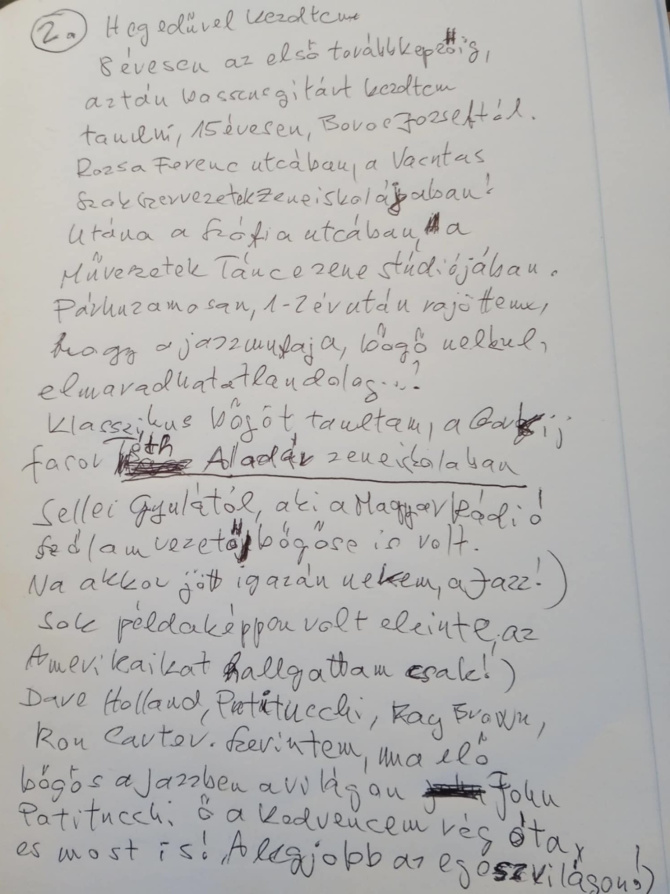 2. Hegedűvel kezdtem
8 évesen az első továbbképzőig,
aztán basszusgitárt kezdtem
tanulni, 15 évesen, Józseftől.
Rozsa Ferenc utcában, a Vasutas
Szakszervezetek Zeneiskolájában!
Utána a Szófia utcában, a
Művezetek Táncezene stúdiójában.
Párhuzamosan, 1-2 év után rájöttem,
hogy a jazz mufaja, bőgő nelkul,
elmaradhatatlan dolog...!
Klasszikus bőgőt, tanultam, a Gorkij
fasor Tóth Aladár zeneiskolaban
Sellei Gyulától, aki a Magyar Rádió
szólamvezető bőgőse is volt.
Na akkor jött igazán nekem, a Jazz!)
Sok példaképpon volt eleinte, az
Amerikaikat hallgattam csak!)
Dave Holland, Patitucchi, Ray Brown,
Ron Carter. Szerintem, ma elő
bőgős a Jazzben a világon John
Patitucchi. Ő a kedvencem rég óta,
es most is! A legjobb az egész világon!)